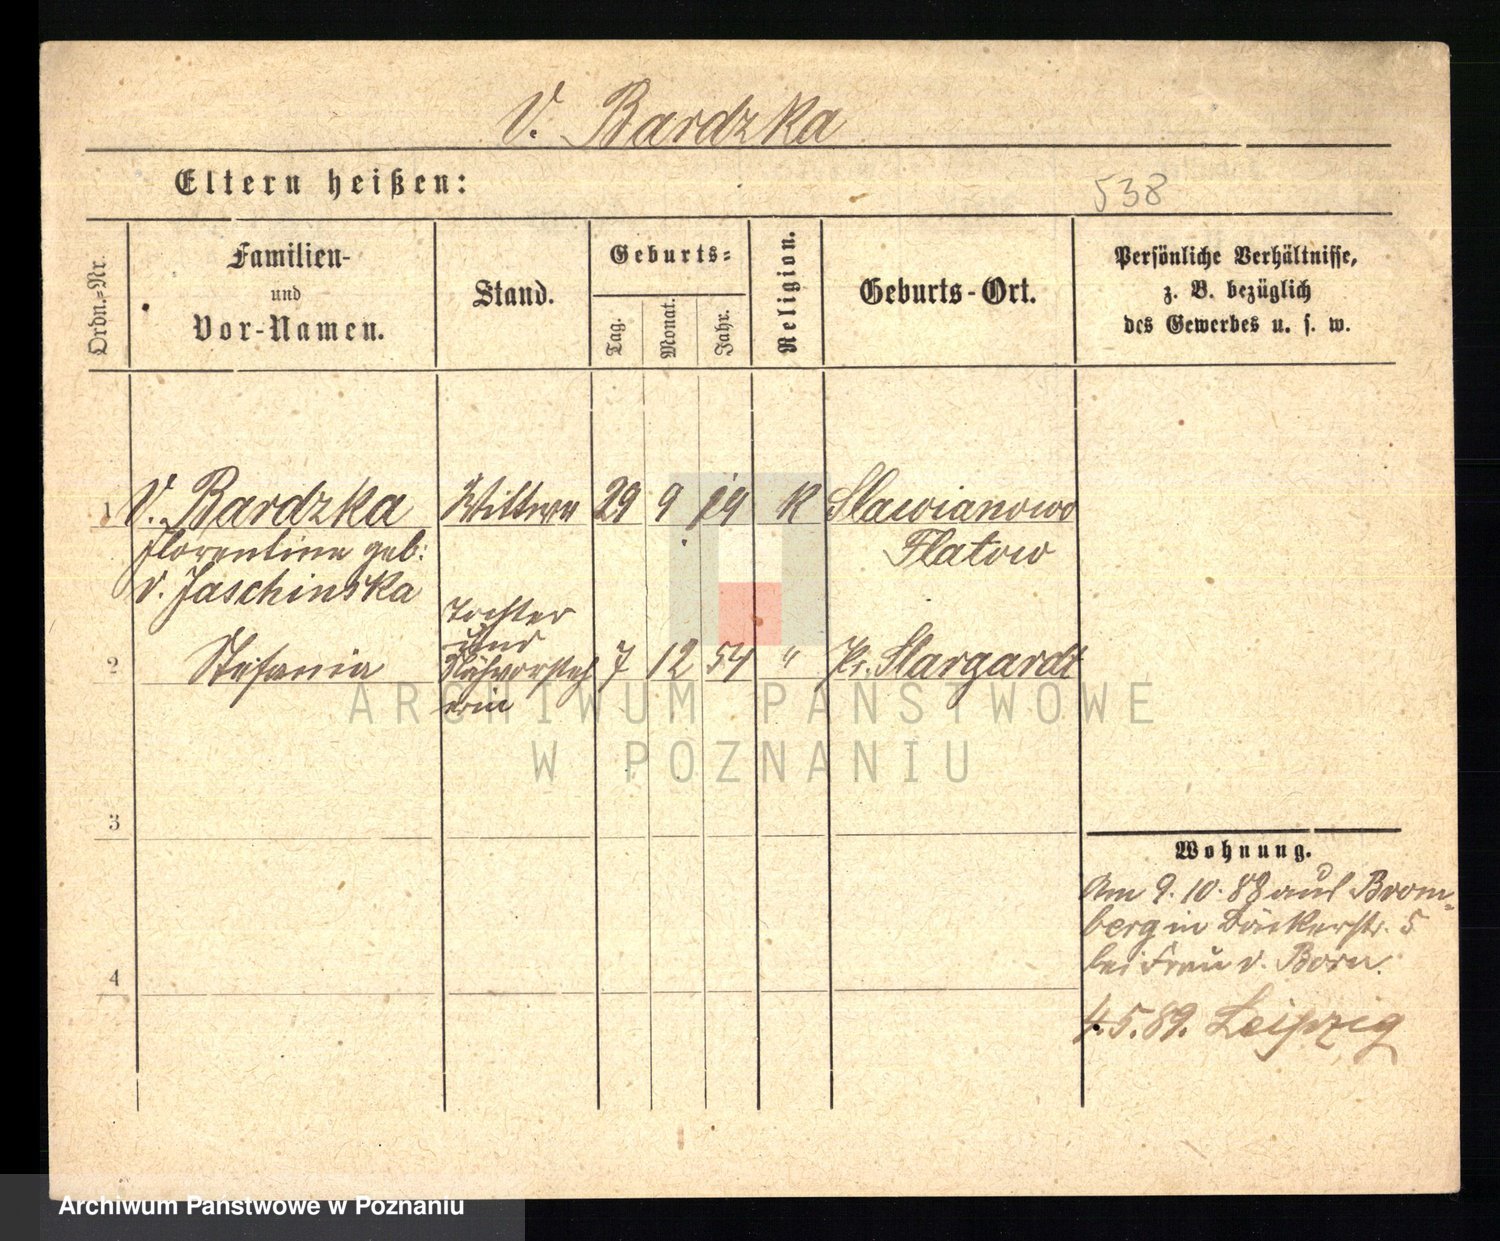 V. Bardzka
Eltern heißen:
538
Ordn.-Nr.
Familien-
und
Vor-Namen.
Stand.
Geburts-
Tag.
Monat.
Jahr.
Religion.
Geburts-Ort.
Persönliche Verhältnisse,
z. B. bezüglich
des Gewerbes u. s. w.
1 V. Bardzka Wittwe 29 9 19 K Slawianowo
Florentine geb: Flatow
v. Jaschinska
Tochter
und
2 Stefania 7 12 54 " Pr. Stargardt
erin
ARCHIWUM PAŃSTWOWE
W POZNANIU
3
Wohnung.
Am 9.10.88 aus Brom-
berg in Bäckerstr. 5
bei Frau v. Born.
4
4.5.89. Leipzig
Archiwum Państwowe w Poznaniu